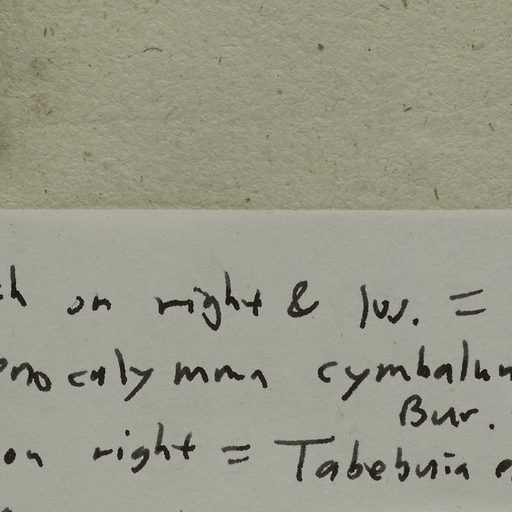 on right & lvs. =
nocalymma cymbalum
Bur.
on right = Tabebuia